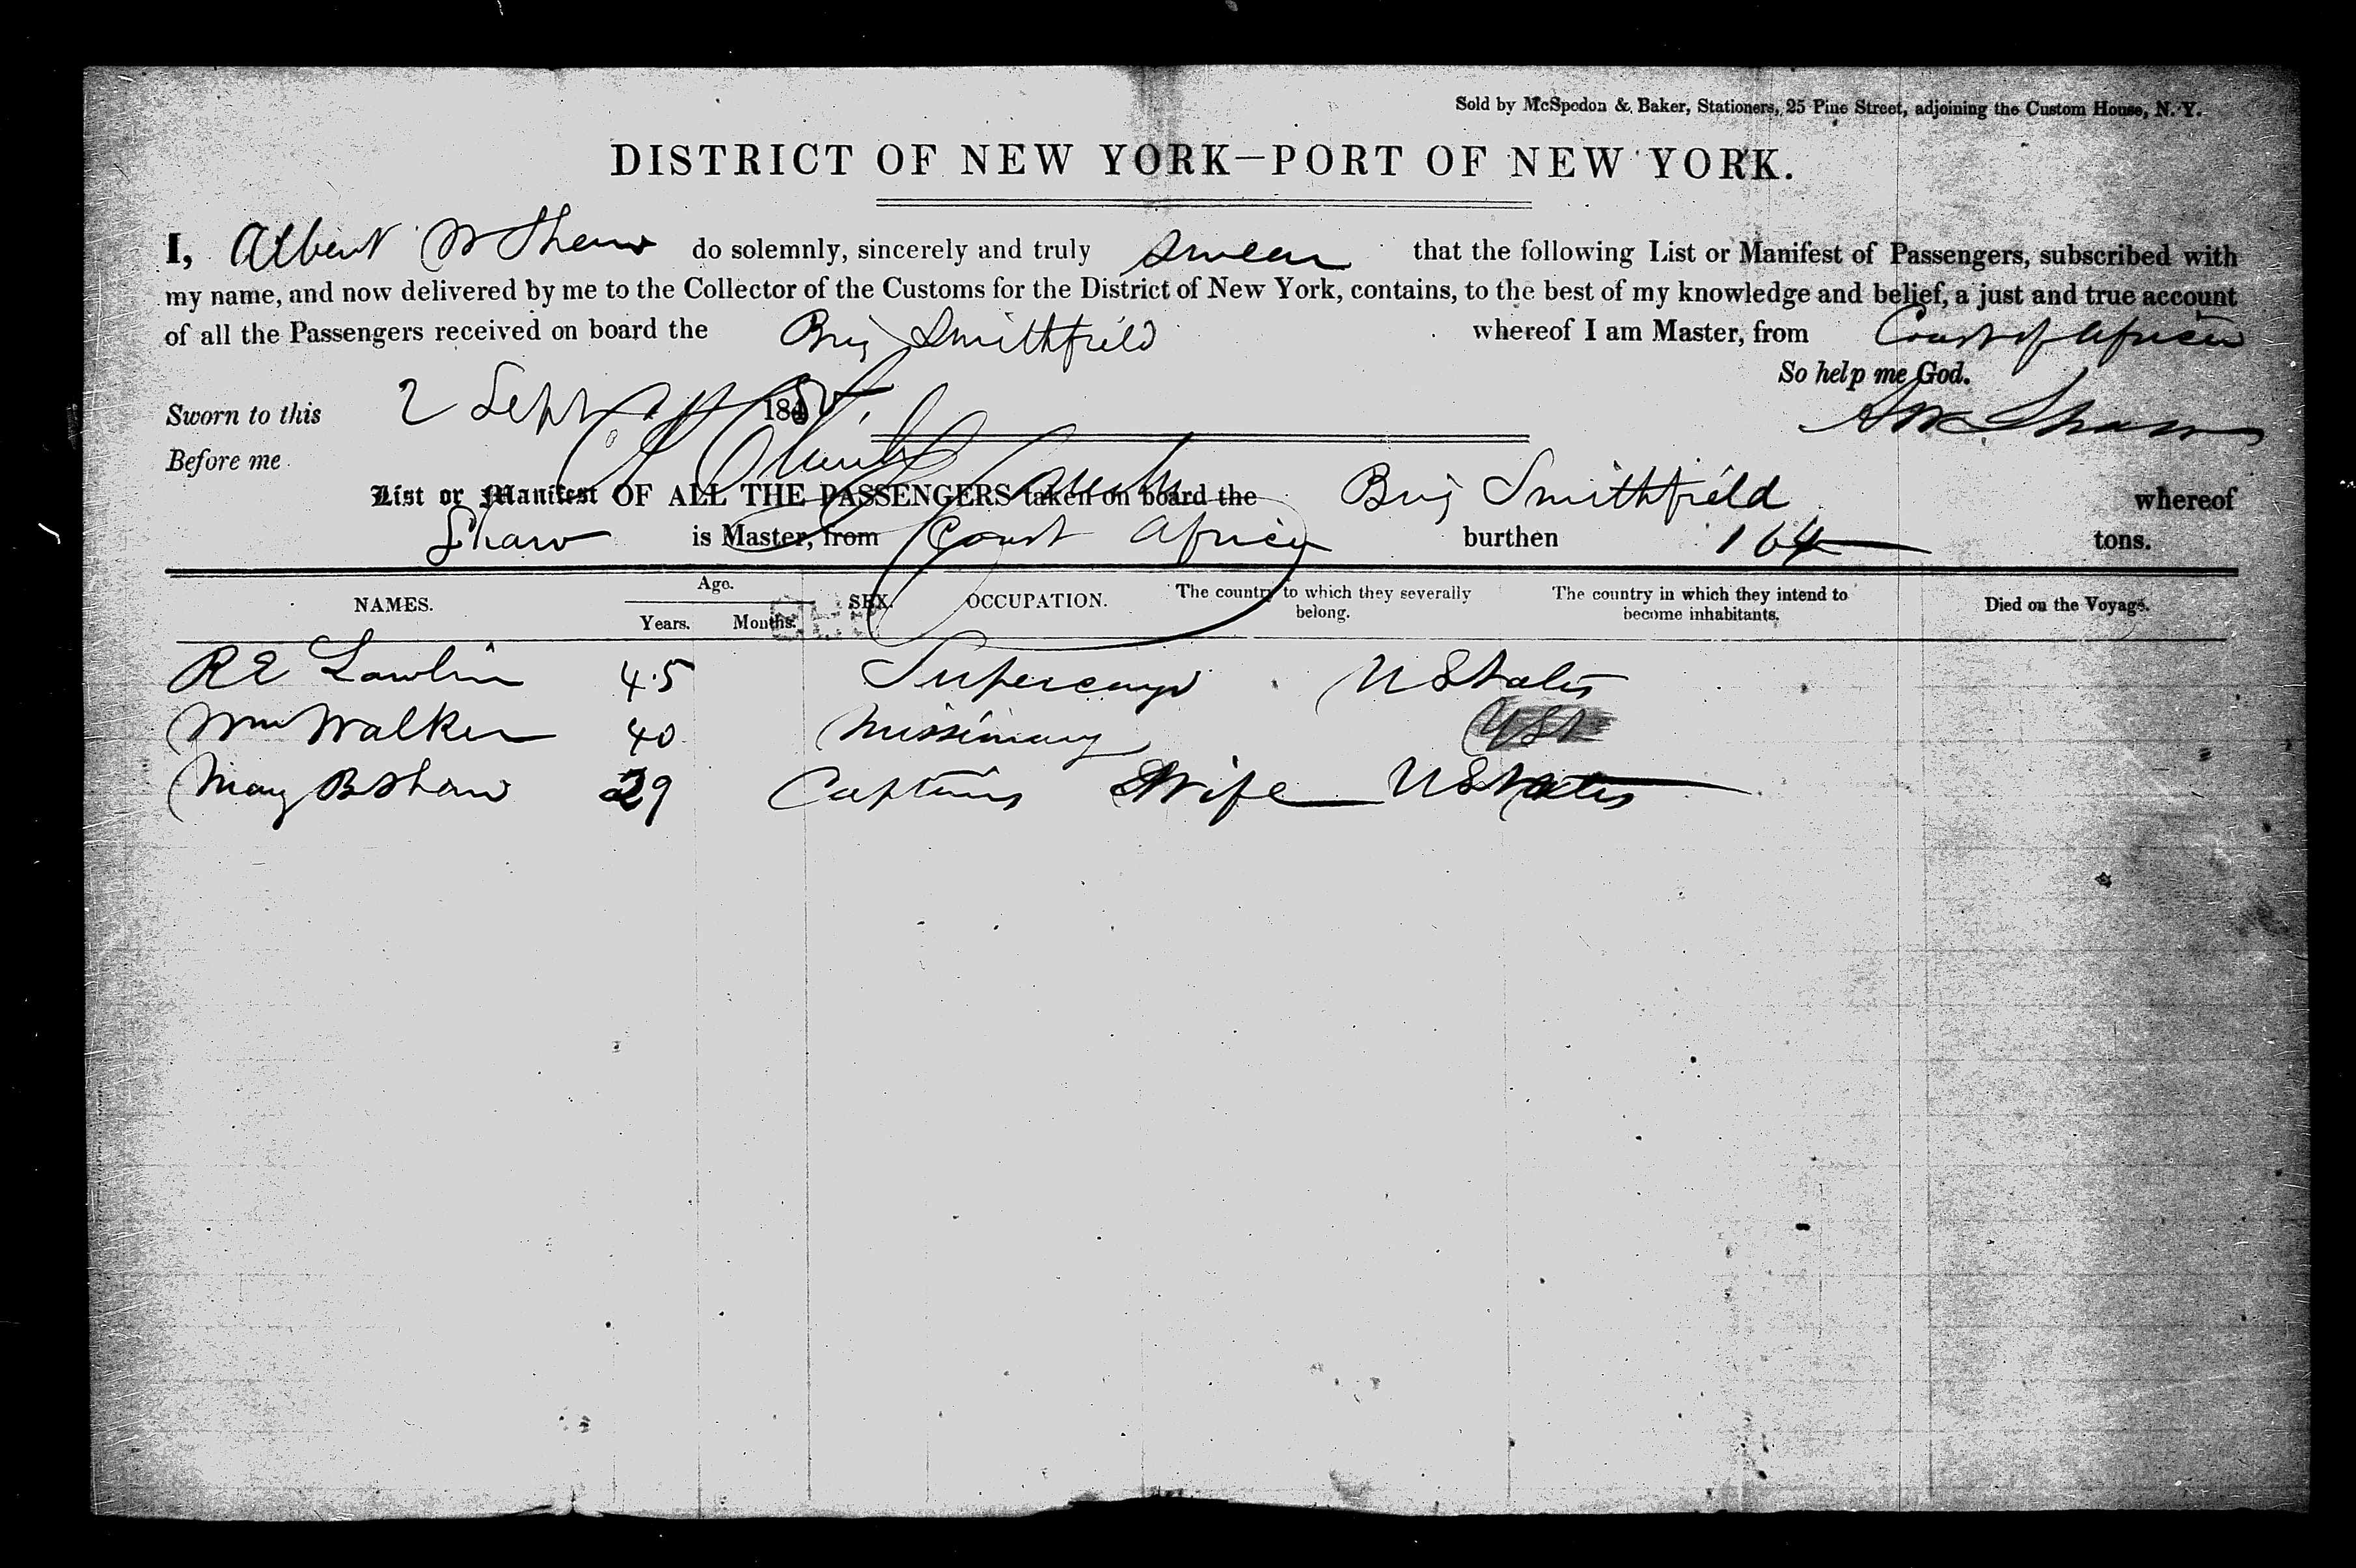 Sold by McSpedon & Baker, Stationers, 25 Pine Street, adjoining the Custom House, N. Y.
DISTRICT OF NEW YORK—PORT OF NEW YORK.
I, Albert W Shaw do solemnly, sincerely and truly swear that the following List or Manifest of Passengers, subscribed with
my name, and now delivered by me to the Collector of the Customs for the District of New York, contains, to the best of my knowledge and belief, a just and true account
of all the Passengers received on board the Brig Smithfield whereof I am Master, from Coast of Africa
So help me God.
Sworn to this 2 Sept 185
A W Shaw
Before me
List or Manifest OF ALL THE PASSENGERS taken on board the Brig Smithfield whereof
Shaw is Master, from Coast Africa burthen 164 tons.
NAMES. Age. Years. Months. SEX. OCCUPATION. The country to which they severally belong. The country in which they intend to become inhabitants. Died on the Voyage.
R E Lawlin 45 Supercargo U States
Wm Walker 40 Missionary USt
Mary B Shaw 29 Captains Wife U States